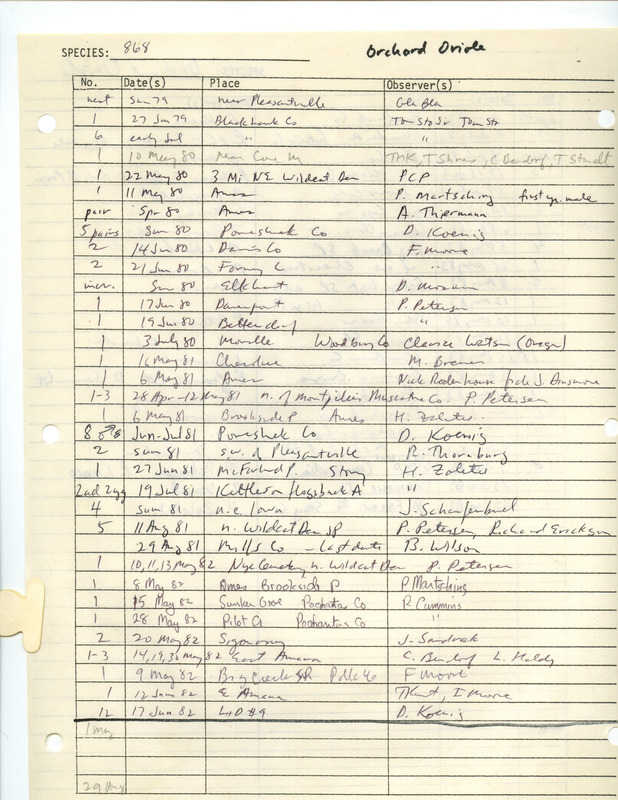 SPECIES: 868 Orchard Oriole
No. Date(s) Place Observer(s)
nest Sum 79 near Pleasantville Gla Bla
1 27 Jun 79 Blackhawk Co Tom Sto Jr Tom Sto
6 early Jul " "
1 10 May 80 near Cone M THK, T Shires, C Bendorf, T Staudt
1 22 May 80 3 Mi NE Wildcat Den PCP
1 11 May 80 Ames P. Martsching first yr. male
pair Spr 80 Ames A. Thiermann
5 pairs Sum 80 Poweshiek Co D. Koenig
2 14 Jun 80 Davis Co F. Moore
2 21 Jun 80 "
incr. Sum 80 Elkhart D.
1 17 Jun 80 Davenport P. Petersen
1 19 Jun 80 Bettendorf "
1 3 July 80 Moville Woodbury Co Clarice Watson (Oregon)
1 16 May 81 Cherokee M. Brewer
1 6 May 81 Ames Nick Rodenhouse fide J. Dinsmore
1-3 28 Apr-12 May 81 n. of Montpelier Muscatine Co. P. Petersen
1 6 May 81 Brookside P Ames H. Zaletel
8 ♂♂ Jun-Jul 81 Poweshiek Co D. Koenig
2 sum 81 s.w. of Pleasantville R. Thornburg
1 27 Jun 81 McFarland P. Story H. Zaletel
2ad 2yg 19 Jul 81 Kettleson Hogsback A "
4 sum 81 n.e. Iowa J. Schaufenbuel
5 11 Aug 81 n. Wildcat Den SP P. Petersen, Richard Erickson
29 Aug 81 Mills Co - last date B. Wilson
1 10, 11, 13 May 82 Nye Cemetery n. Wildcat Den P. Petersen
1 8 May 82 Ames Brookside P P Martsching
1 15 May 82 Sunken Grove Pocahontas Co R Cummins
1 28 May 82 Pilot Cr Pocahontas Co "
2 20 May 82 Sigourney J. Sandrock
1-3 14, 19, 30 May 82 East Amana C. Bendorf L. Halds
1 9 May 82 Big Creek SP Polk Co F Moore
1 12 Jun 82 E Amana T Kent, I Moore
12 17 Jun 82 L+D #9 D. Koenig
1 May
29 Aug